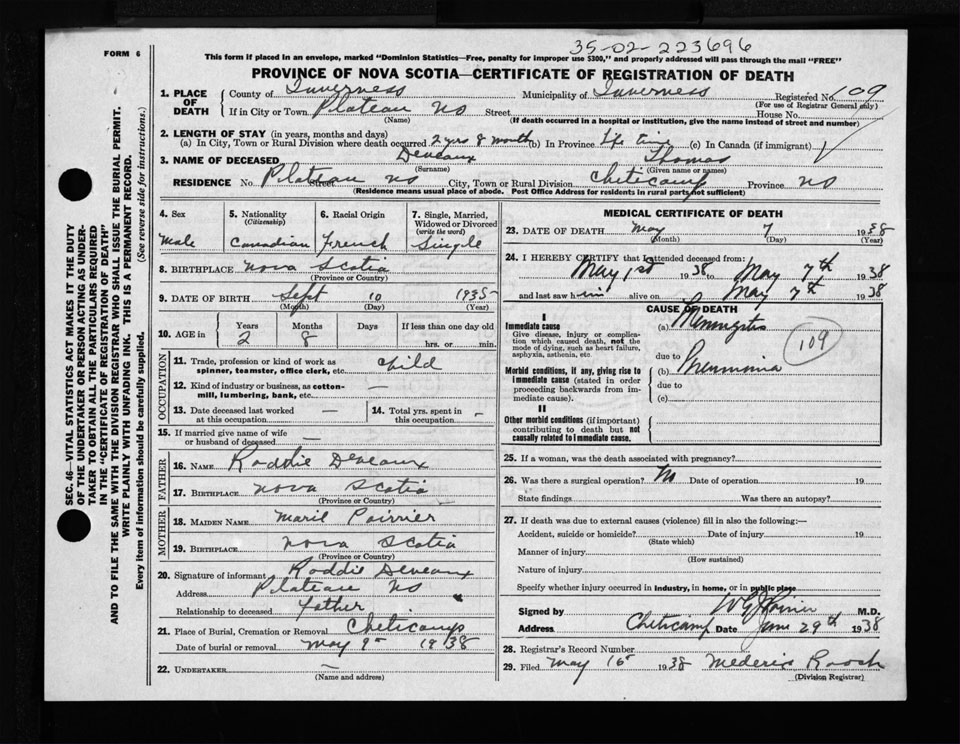 FORM 6
35-02-223696
This form if placed in an envelope, marked "Dominion Statistics—Free, penalty for improper use $300," and properly addressed will pass through the mail "FREE"
PROVINCE OF NOVA SCOTIA—CERTIFICATE OF REGISTRATION OF DEATH
SEC. 46—VITAL STATISTICS ACT MAKES IT THE DUTY
OF THE UNDERTAKER OR PERSON ACTING AS UNDER-
TAKER TO OBTAIN ALL THE PARTICULARS REQUIRED
IN THE "CERTIFICATE OF REGISTRATION OF DEATH"
AND TO FILE THE SAME WITH THE DIVISION REGISTRAR WHO SHALL ISSUE THE BURIAL PERMIT.
WRITE PLAINLY WITH UNFADING INK. THIS IS A PERMANENT RECORD.
Every item of information should be carefully supplied. (See reverse side for instructions.)
1. PLACE OF DEATH County of Inverness Municipality of Inverness Registered No. 109
(For use of Registrar General only)
If in City or Town Plateau NS Street House No.
(Name) (If death occurred in a hospital or institution, give the name instead of street and number)
2. LENGTH OF STAY (in years, months and days)
(a) In City, Town or Rural Division where death occurred 2 yrs 8 month (b) In Province Life time (c) In Canada (if immigrant)
3. NAME OF DECEASED Deveaux Thomas
(Surname) (Given name or names)
RESIDENCE No. Plateau NS Street City, Town or Rural Division Cheticamp Province NS
(Residence means usual place of abode. Post Office Address for residents in rural parts not sufficient)
4. Sex
Male
5. Nationality
(Citizenship)
Canadian
6. Racial Origin
French
7. Single, Married,
Widowed or Divorced
(write the word)
Single
8. BIRTHPLACE Nova Scotia
(Province or Country)
9. DATE OF BIRTH Sept 10 1935
(Month) (Day) (Year)
10. AGE in Years Months Days If less than one day old
2 8 hrs. or min.
OCCUPATION
11. Trade, profession or kind of work as
spinner, teamster, office clerk, etc. Child
12. Kind of industry or business, as cotton-
mill, lumbering, bank, etc. —
13. Date deceased last worked
at this occupation —
14. Total yrs. spent in
this occupation —
15. If married give name of wife
or husband of deceased —
FATHER
16. NAME Roddie Deveaux
17. BIRTHPLACE Nova Scotia
(Province or Country)
MOTHER
18. MAIDEN NAME Maril Poirrier
19. BIRTHPLACE Nova Scotia
(Province or Country)
20. Signature of informant Roddie Deveaux
Address Plateau NS
Relationship to deceased father
21. Place of Burial, Cremation or Removal Cheticamp
Date of burial or removal May 9th 1938
22. UNDERTAKER —
(Name and address)
MEDICAL CERTIFICATE OF DEATH
23. DATE OF DEATH May 7 1938
(Month) (Day) (Year)
24. I HEREBY CERTIFY that I attended deceased from:
May 1st 1938 to May 7th 1938
and last saw him alive on May 7th 1938
CAUSE OF DEATH
I
Immediate cause
Give disease, injury or complica-
tion which caused death, not the
mode of dying, such as heart failure,
asphyxia, asthenia, etc.
(a) Meningitis
109
due to
Morbid conditions, if any, giving rise to
immediate cause (stated in order
proceeding backwards from im-
mediate cause).
(b) Pneumonia
due to
(c)
II
Other morbid conditions (if important)
contributing to death but not
causally related to immediate cause.
25. If a woman, was the death associated with pregnancy?
26. Was there a surgical operation? No Date of operation 19
State findings Was there an autopsy?
27. If death was due to external causes (violence) fill in also the following:—
Accident, suicide or homicide? Date of injury 19
(State which)
Manner of injury
(How sustained)
Nature of injury
Specify whether injury occurred in industry, in home, or in public place
Signed by M.D.
Address Cheticamp Date June 29th 1938
28. Registrar's Record Number
29. Filed May 16 1938 Mederic Roach
(Division Registrar)